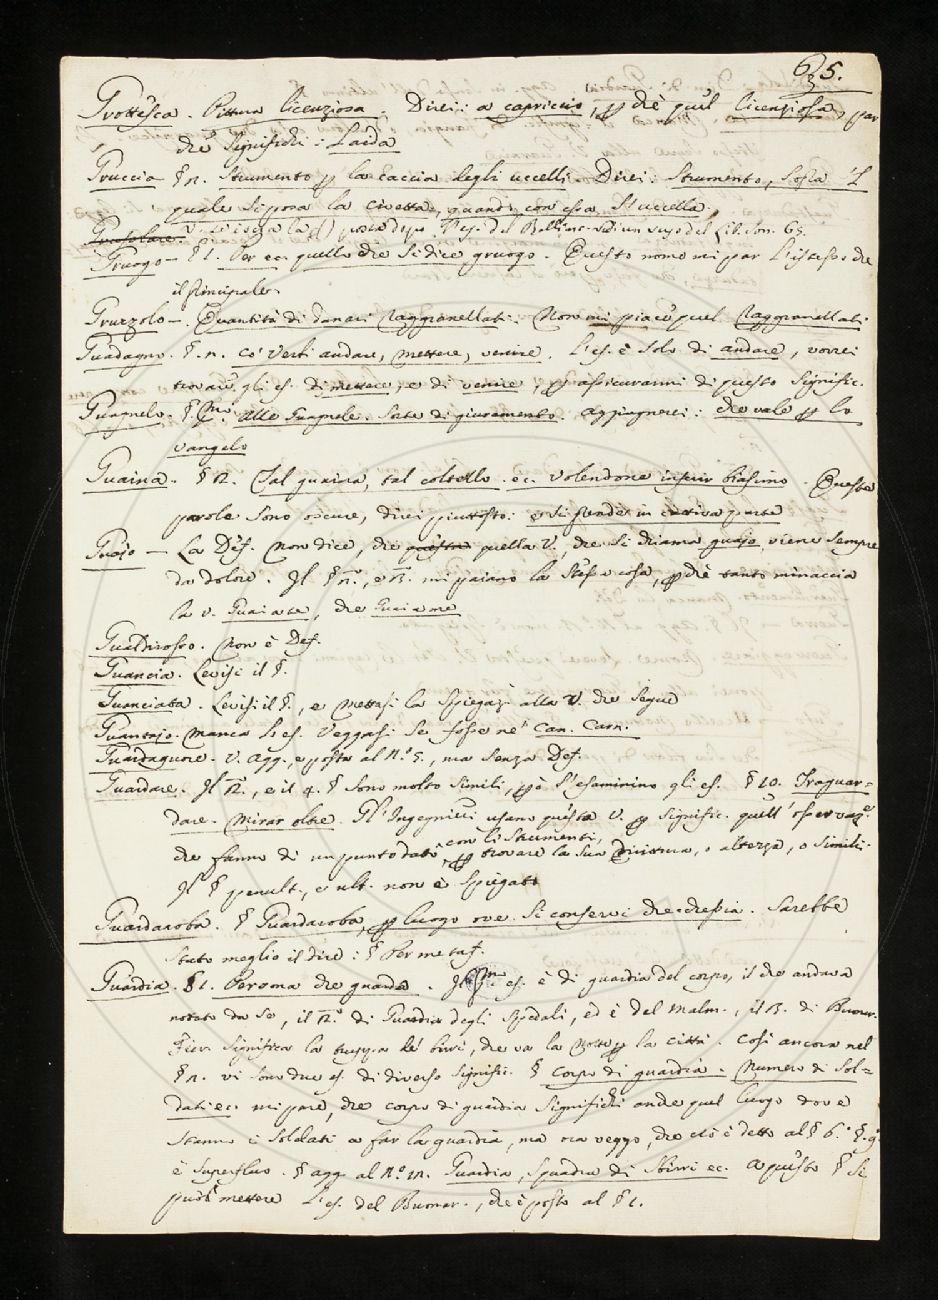 635.
Grottesca. Pittura licenziosa. Direi: a capriccio, pchè quel licenziosa, par
che significhi: Laida
Gruccia § 2. Strumento p la caccia degli uccelli. Direi: Strumento, sopra 'L
quale si posa la civetta, quando con essa si uccella.
Grufolare. V. un uso del Lib. Son. 65.
Gruogo — § 1. Per ec. quello che si dice gruogo. Questo nome mi par l'istesso che
il principale.
Gruzzolo —. Quantità di danari raggranellati. Non mi piace quel raggranellati
Guadagno. § n. co' verbi andare, mettere, venire. L'es. è solo di andare, vorrei
trovare gli es. di mettere, e di venire, p assicurarmi di questo signific.
Guagnelo. § Pmo. alle Guagnele. Sorte di giuramento. Aggiugnerei: che vale p lo
vangelo
Guaina. § 2. Tal guaina, tal coltello. ec. volendone inferir biasimo. Queste
parole sono oscure, direi piuttosto: e si prende in cattiva parte
Guajo — La Def. non dice, che questa quella V., che si chiama guajo, viene sempre
da dolore. Il § 1., e 2. mi paiano la stessa cosa, pchè tanto minaccia
la v. Guaiare, che Guaiame
Gualdrosso. Non è Def.
Guancia. Levisi il §.
Guanciata. Levisi il §., e mettasi la spiegaz. alla V. che segue
Guantajo. Manca l'es. Veggasi se fosse ne' Can. Carn.
Guardaguore. V. agg., e posta al N.° 5., ma senza Def.
Guardare. Il 2., e il 4. § sono molto simili, pò s'esaminino gli es. § 10. Traguar=
dare. Mirar oltre. Gl'Ingegneri usano questa V. p signific. quell'osservaz.e
che fanno di un punto dato con li strumenti, p trovare la sua dirittura, o altezza, o simili.
Il § penult., e ult. non è spiegato
Guardaroba. § Guardaroba, p luogo ove si conservi che che sia. Sarebbe
stato meglio il dire: § Per metaf.
Guardia. § 1. Persona che guarda. Il Pmo es. è di guardia del corpo, il che andava
notato da se, il 2.° di Guardia degli Spedali, ed è del Malm., il 3. di Buonar.
Fier. significa la truppa de' birri, che va la notte p la città. Così ancora nel
§ 2. vi sono due es. di diverso signific. § Corpo di guardia. Numero di Sol=
dati ec. mi pare, che corpo di guardia significhi anche quel luogo dove
stanno i soldati a far la guardia, ma ora veggo, che ciò è detto al § 6.° §. 9.
è superfluo. § agg. al N.° 12. Guardia, squadra di Sbirri ec. A questo § si
può mettere l'es. del Buonar., che è posto al § 1.